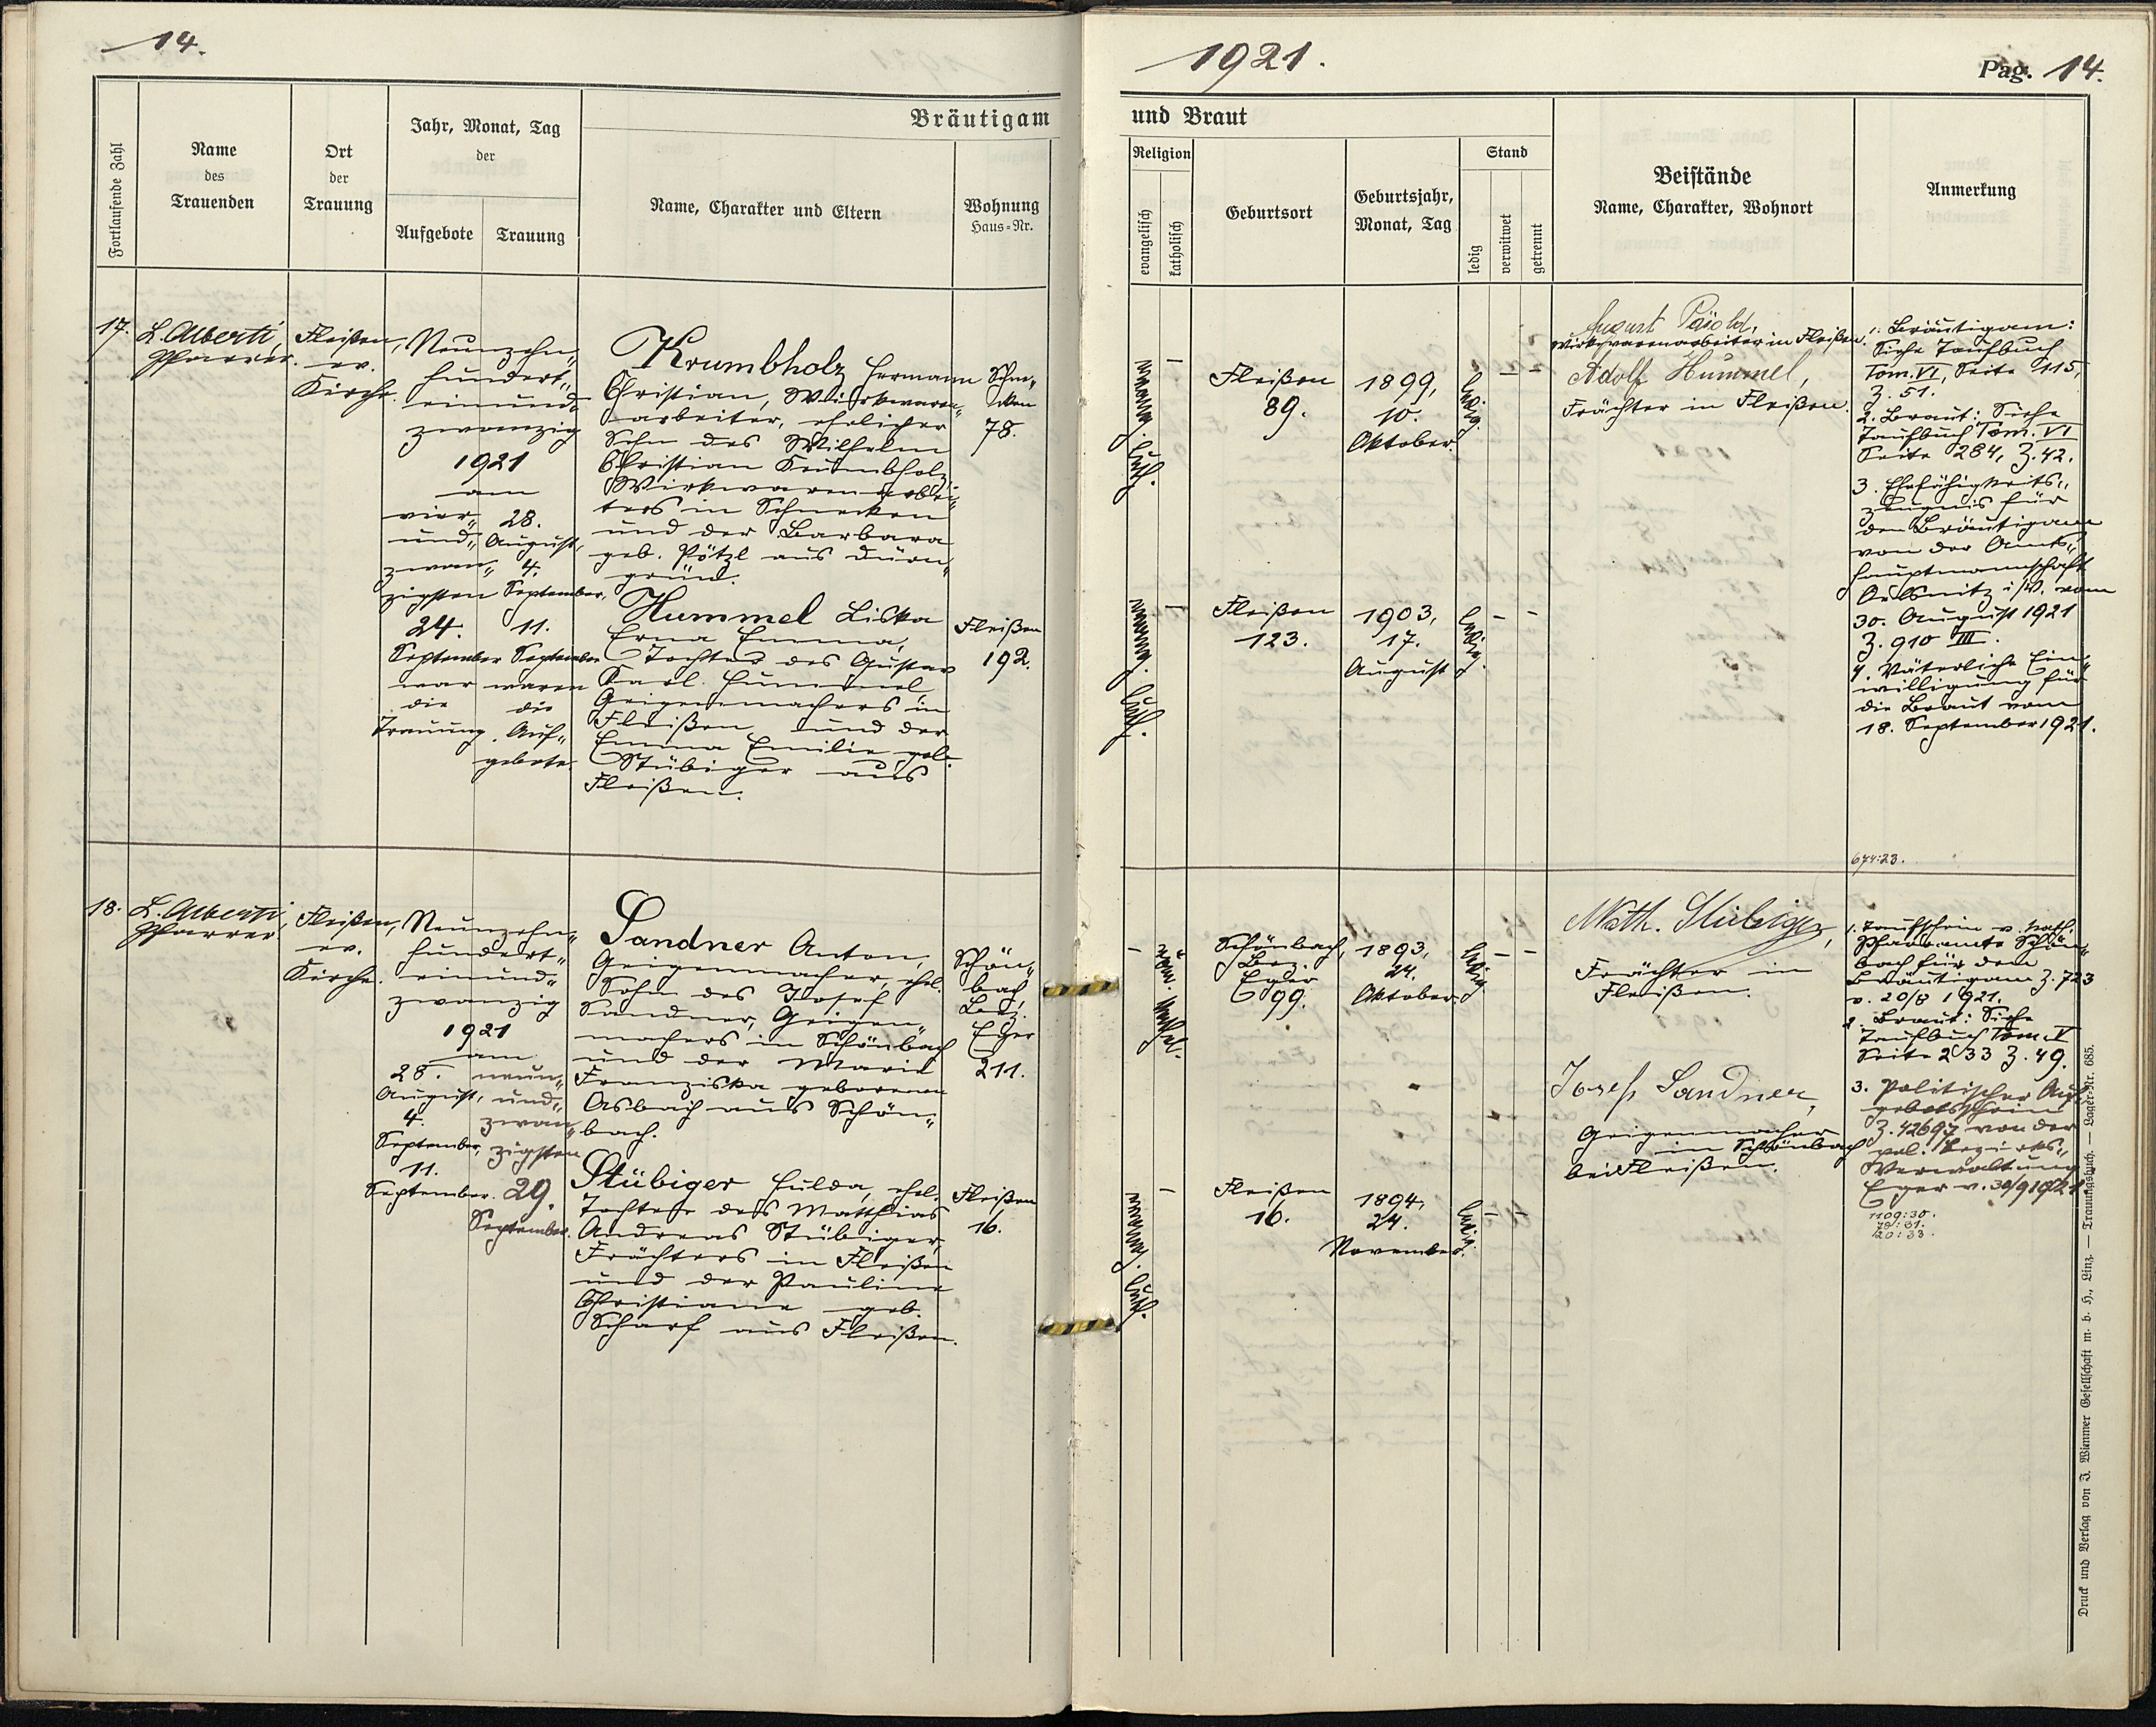 14.
1921.
Pag. 14.
Bräutigam
und Braut
Fortlaufende Zahl
Name
des
Trauenden
Ort
der
Trauung
Jahr, Monat, Tag
der
Aufgebote
Trauung
Name, Charakter und Eltern
Wohnung
Haus-Nr.
Religion
evangelisch
katholisch
Geburtsort
Geburtsjahr,
Monat, Tag
Stand
ledig
verwitwet
getrennt
Beistände
Name, Charakter, Wohnort
Anmerkung
17.
L. Alberti,
Pfarrer.
Fleißen,
ev.
Kirche.
Neunzehn„
hundert„
einund„
zwanzig
1921
am
vier„
und„
zwan„
zigsten
24.
September
war
die
Trauung.
28.
August,
4.
September,
11.
September
waren
die
Auf„
gebote.
Krumbholz Hermann
Christian, Wirkwaren„
arbeiter, ehelicher
Sohn des Wilhelm
Christian Krumbholz
Wirkwarenarbei„
ters in Schnecken
und der Barbara
geb. Pötzl aus Dürn„
grün.
Schne„
cken
78.
Hummel Liska
Erna Emma,
Tochter des Gustav
Karl Hummel
Geigenmachers in
Fleißen und der
Emma Emilie geb.
Stübiger aus
Fleißen.
Fleißen
192.
evang. luth.
Fleißen
89.
1899,
10.
Oktober.
ledig.
evang. luth.
Fleißen
123.
1903,
17.
August
ledig.
August
Wirkwarenarbeiter in Fleißen.
Adolf Hummel,
Frächter in Fleißen.
1. Bräutigam:
Siehe Taufbuch
Tom. VI, Seite 115,
Z. 51.
2. Braut: Siehe
Taufbuch Tom. VI
Seite 284, Z. 42.
3. Ehefähigkeits„
zeugnis für
den Bräutigam
von der Amts„
hauptmannschaft
Oelsnitz i/V. vom
30. August 1921
Z. 910 III.
4. Väterliche Ein„
willigung für
die Braut vom
18. September 1921.
674:23.
18.
L. Alberti,
Pfarrer.
Fleißen,
ev.
Kirche.
Neunzehn„
hundert„
einund„
zwanzig
1921
am
28.
August,
4.
September,
11.
September.
neun„
und„
zwan„
zigsten
29.
September.
Sandner Anton,
Geigenmacher, ehel.
Sohn des Josef
Sandner, Geigen„
machers in Schönbach
und der Maria
Franziska geborenen
Asbach aus Schön„
bach.
Schön„
bach,
Bez.
Eger
211.
Stübiger Hulda, ehel.
Tochter des Matthias
Andreas Stübiger,
Frächters in Fleißen
und der Pauline
Christiane geb.
Scharf aus Fleißen.
Fleißen
16.
röm. kathol.
Schönbach,
Bez.
Eger
99.
1893,
24.
Oktober
ledig
evang. luth.
Fleißen
16.
1894,
24.
November.
ledig.
Math. Stübiger,
Frächter in
Fleißen.
Josef Sandner,
Geigenmacher
in Schönbach
bei Fleißen.
1. Taufschein v. kath.
Pfarramte Schön„
bach für den
Bräutigam Z. 723
v. 20/8 1921.
2. Braut: Siehe
Taufbuch Tom. V
Seite 233 Z. 49.
3. Politischer Auf„
gebotsschein
Z. 42697 von der
pol. Bezirks„
Verwaltung
Eger v. 30/9 1921
1109:30.
79:31.
120:33.
Druck und Verlag von J. Wimmer Gesellschaft m. b. H., Linz. — Trauungsbuch. — Lager-Nr. 685.